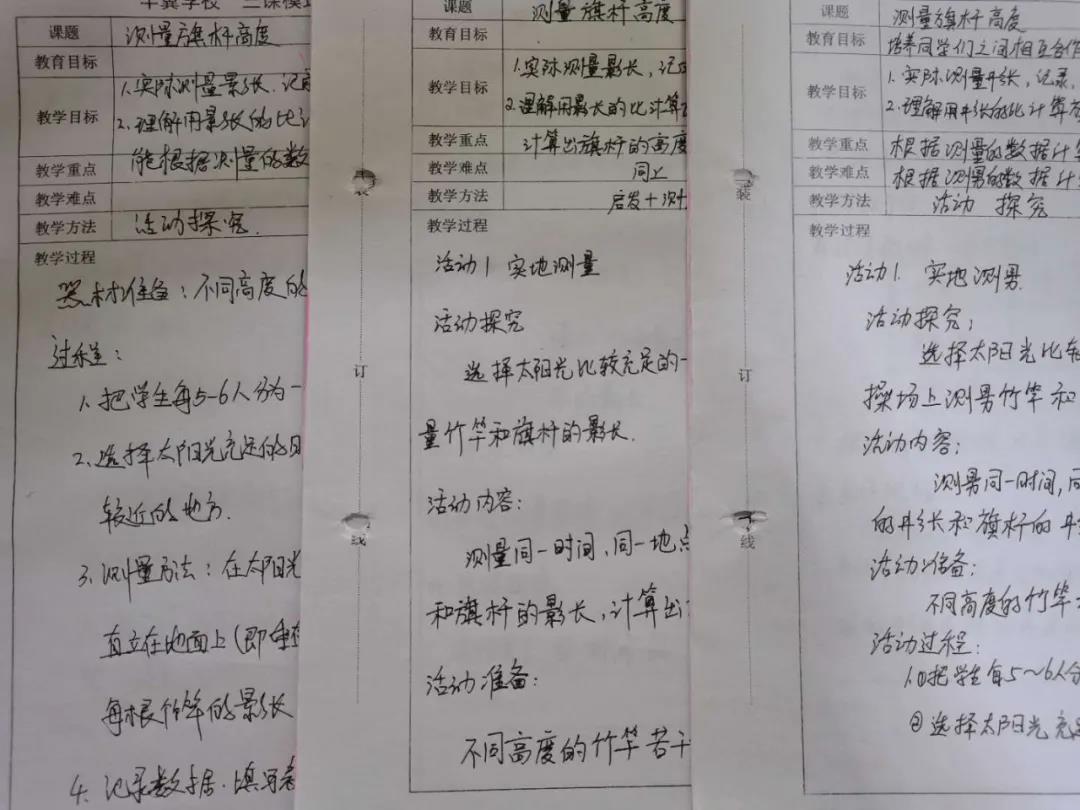 学校
课题
测量旗杆高度
教育目标
教学目标
1.实际测量影长、记录
2.理解用影长的比计
教学重点
能根据测量的数
教学难点
教学方法
活动探究.
教学过程
器材准备:不同高度的
过程:
1.把学生每5-6人分为一
2.选择太阳光充足的
较近的地方.
3.测量方法:在太阳光
直立在地面上(即垂
每根竹竿的影长
4.记录数据.填写表
装
订
线
课题
测量旗杆高度
教育目标
教学目标
1.实际测量影长,记
2.理解用影长的比计算
教学重点
计算出旗杆的高度
教学难点
同上
教学方法
启发+测
教学过程
活动1 实地测量
活动探究
选择太阳光比较充足的一
量竹竿和旗杆的影长.
活动内容:
测量同一时间,同一地点
和旗杆的影长,计算出
活动准备:
不同高度的竹竿若干
装
订
线
课题
测量旗杆高度
教育目标
培养同学们之间相互合作
教学目标
1.实际测量影长,记录,
2.理解用影长的比计算
教学重点
根据测量的数据计算
教学难点
根据测量的数据计
教学方法
活动 探究
教学过程
活动1. 实地测量
活动探究;
选择太阳光比较
操场上测量竹竿和
活动内容:
测量同一时间,同
的影长和旗杆的影
活动准备:
不同高度的竹竿
活动过程:
1.①把学生每5~6人分
②选择太阳光充